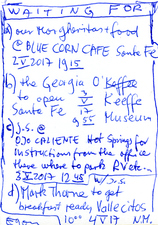 WAITING FOR
a) our Margharitas + food
@ BLUE CORN CAFE Santa Fe
2 V 2017 19 15
b) the Georgia O'Keffee
to open 3/V Keeffe
9 55 Museum
c) J.S. @
OJO CALIENTE Hot Springs for
instructions from the office
there where to park RV etc...
3 V 2017 12 45 W/ J.S.
d) Mark Thorne to get
breakfast ready Vallecitos
10 00 4 V 17 N.M.